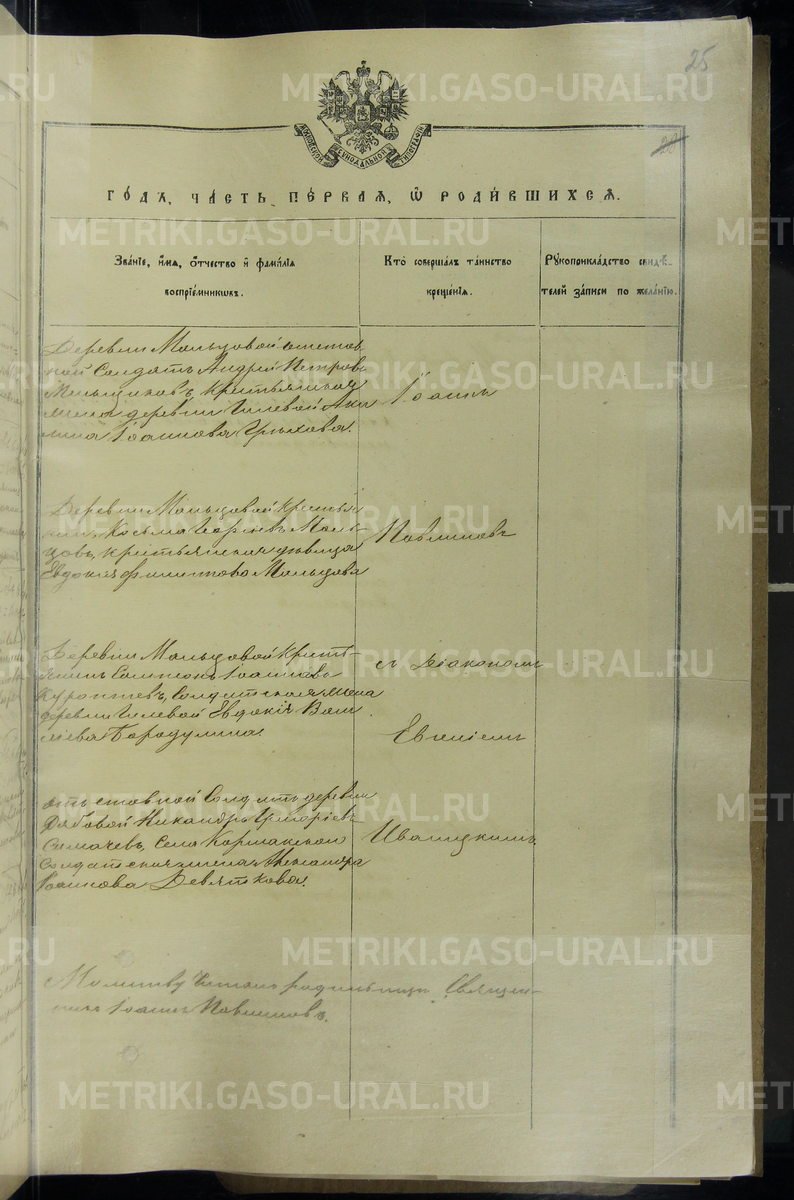 25
28
МОСКОВСКОЙ СУНОДАЛЬНОЙ ТИПОГРАФІИ
ГОДЪ, ЧАСТЬ ПЕРВАЯ, Ѽ РОДИВШИХСЯ.
Званіе, имя, отчество и фамилія
воспріемниковъ.
Кто совершалъ таинство
крещенія.
Рукоприкладство свидѣ-
телей записи по желанію.
Деревни Мальцовой отстав
ной Солдатъ Андрей Петровъ
Меньщиковъ, крестьянская
жена деревни Гилевой Аки
лина Іоаннова
Іоаннъ
Деревни Мальцовой крестья
нинъ Косьма Георгіевъ Маль
цовъ, крестьянская дѣвица
Евдокія Филиппова Мальцова
Павлиновъ
Деревни Мальцовой кресть
янинъ Сампсонъ Іоанновъ
Солдатская жена
деревни Гилевой Евдокія Васи
лева Бородулина
съ Діакономъ
Евгеніемъ
отставной Солдатъ деревни
Никандръ Григоріевъ
села
Солдатская жена Александра
Іоаннова Девяткова.
Ивацкимъ.
Молитву читалъ родильницѣ Священ-
никъ Іоаннъ Павлиновъ.
METRIKI.GASO-URAL.RU